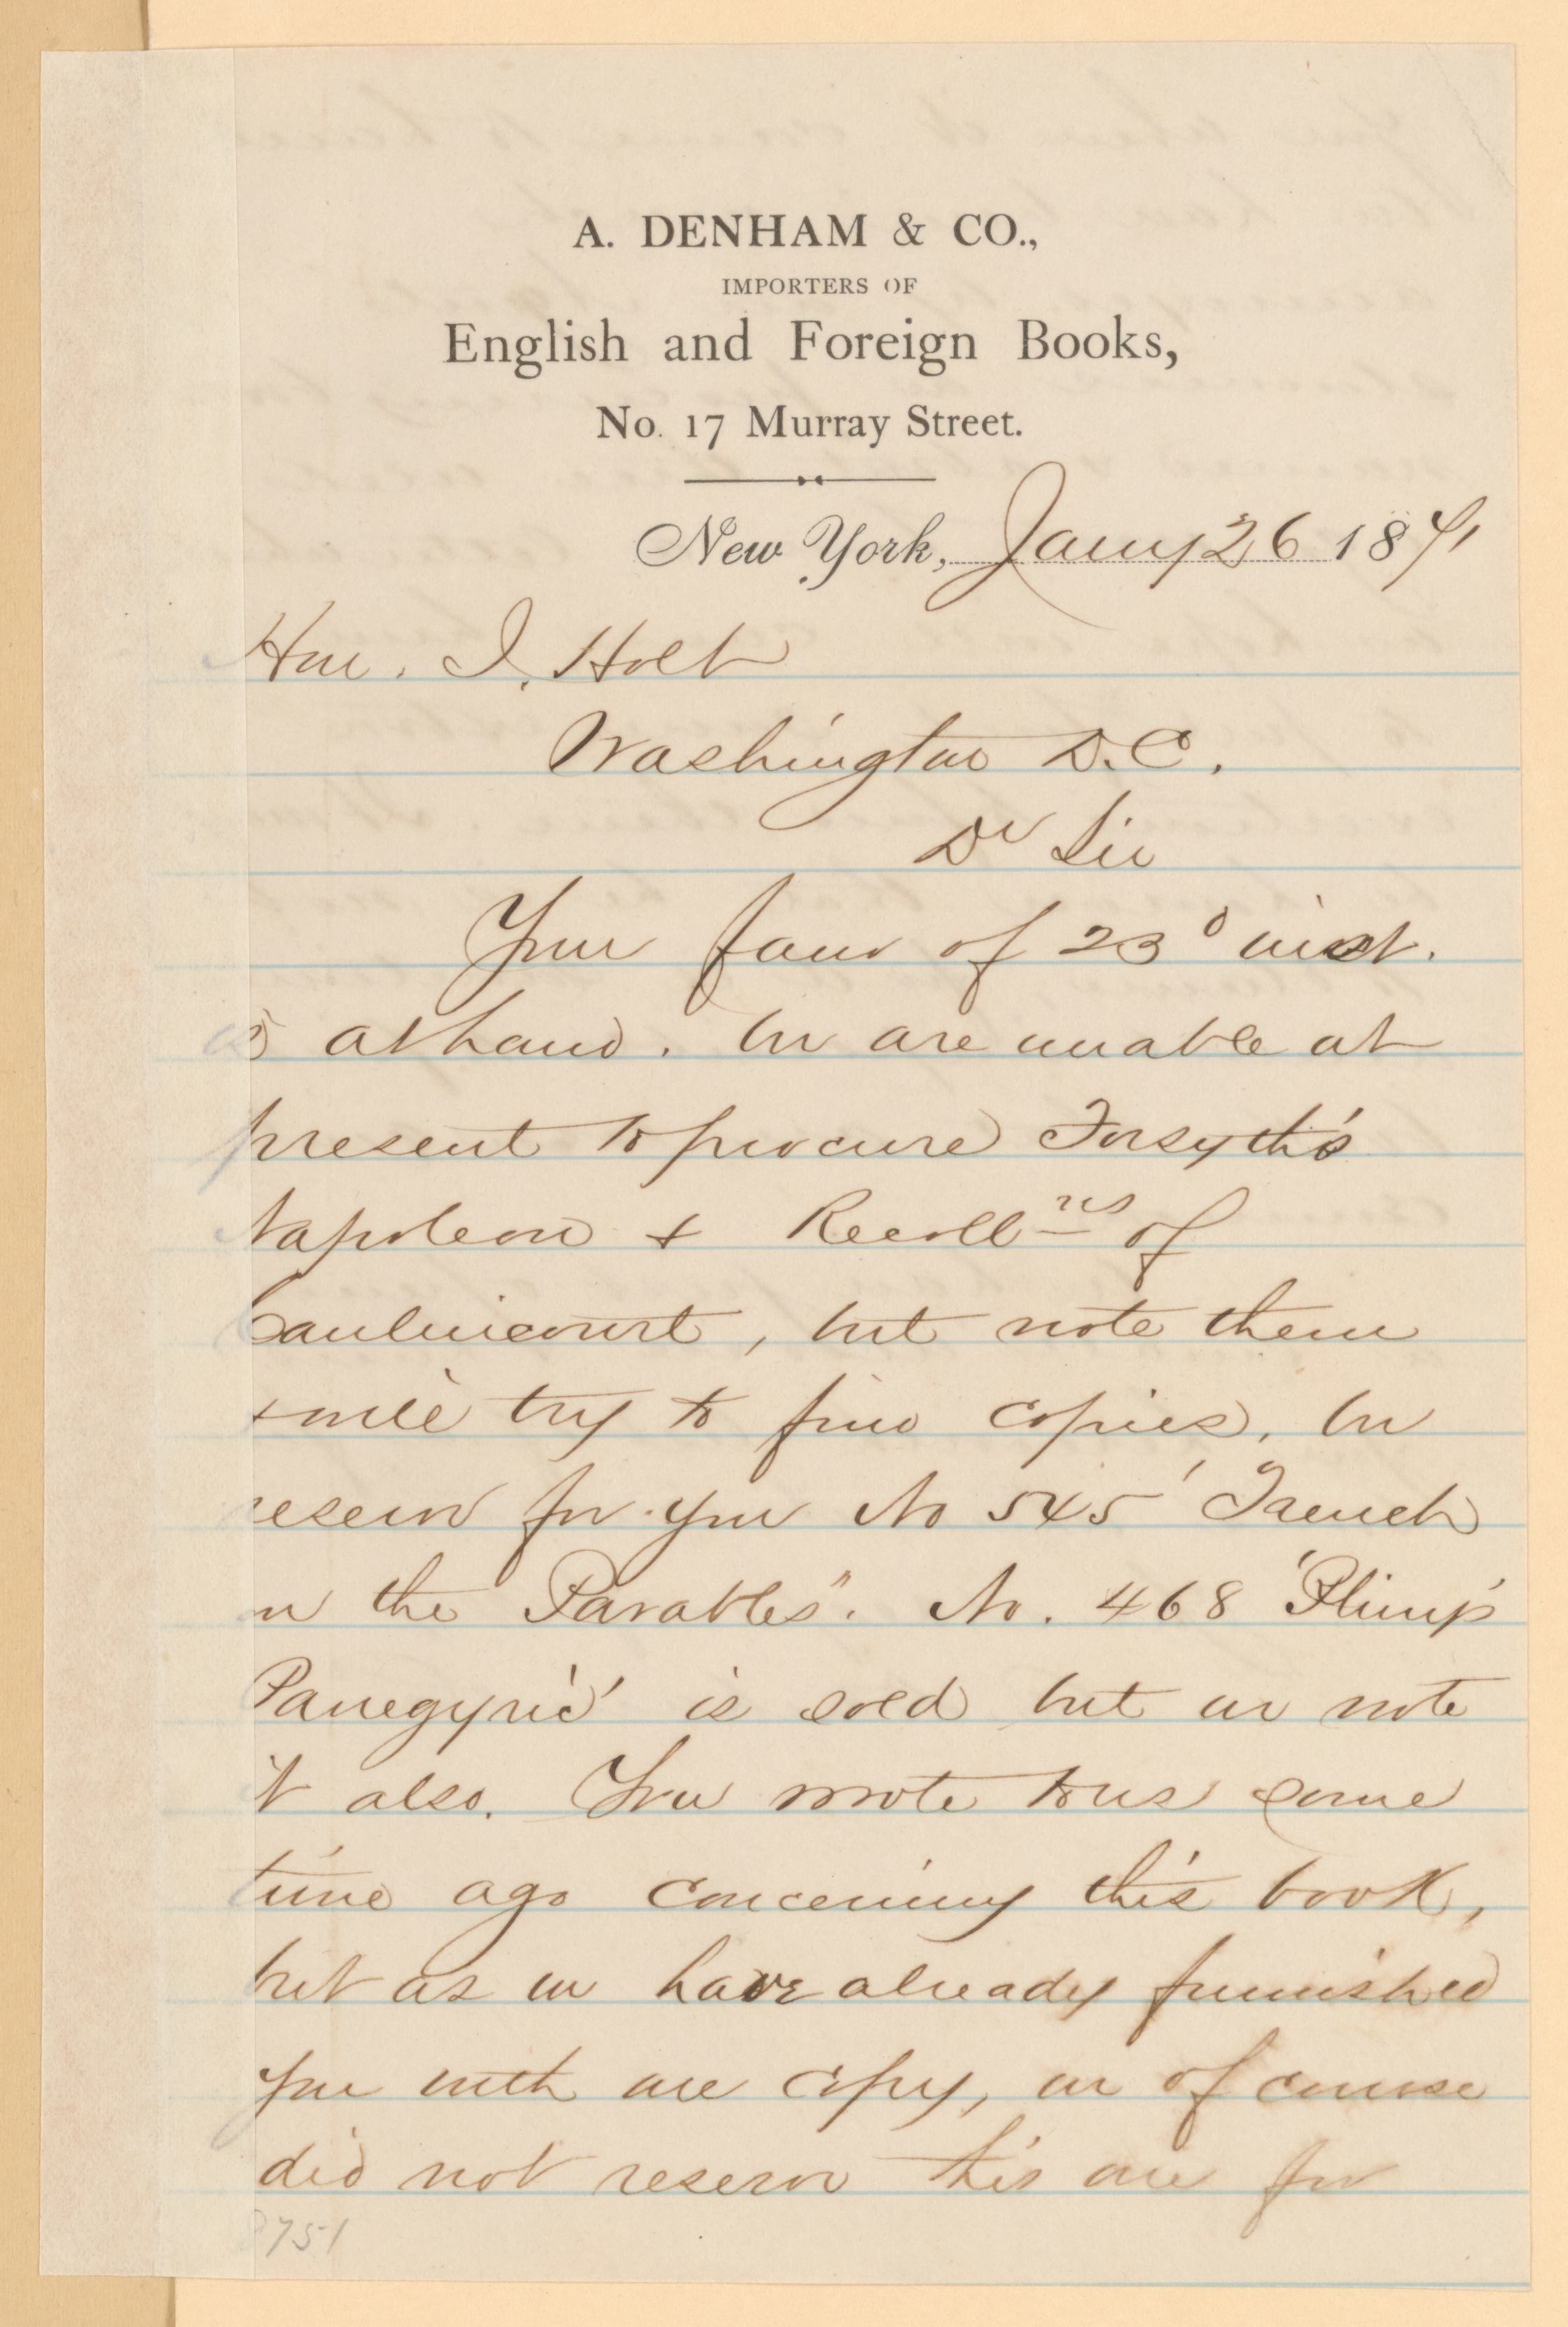 A. DENHAM & CO.,
IMPORTERS OF
English and Foreign Books,
No. 17 Murray Street.
New York, Jany 26 1871
Hon. J. Holt
Washington D.C.
Dr Sir
Your favor of 23d inst.
is at hand. We are unable at
present to procure Forsyth's
Napoleon & Recollns of
Caulincourt, but note them
& will try to find copies. We
reserve for you No 545 'Trench
on the Parables". No. 468 'Pliny's
Panegyric' is sold but we note
it also. You wrote to us some
time ago concerning this book,
but as we have already furnished
you with one copy, we of course
did not reserve this one for
751